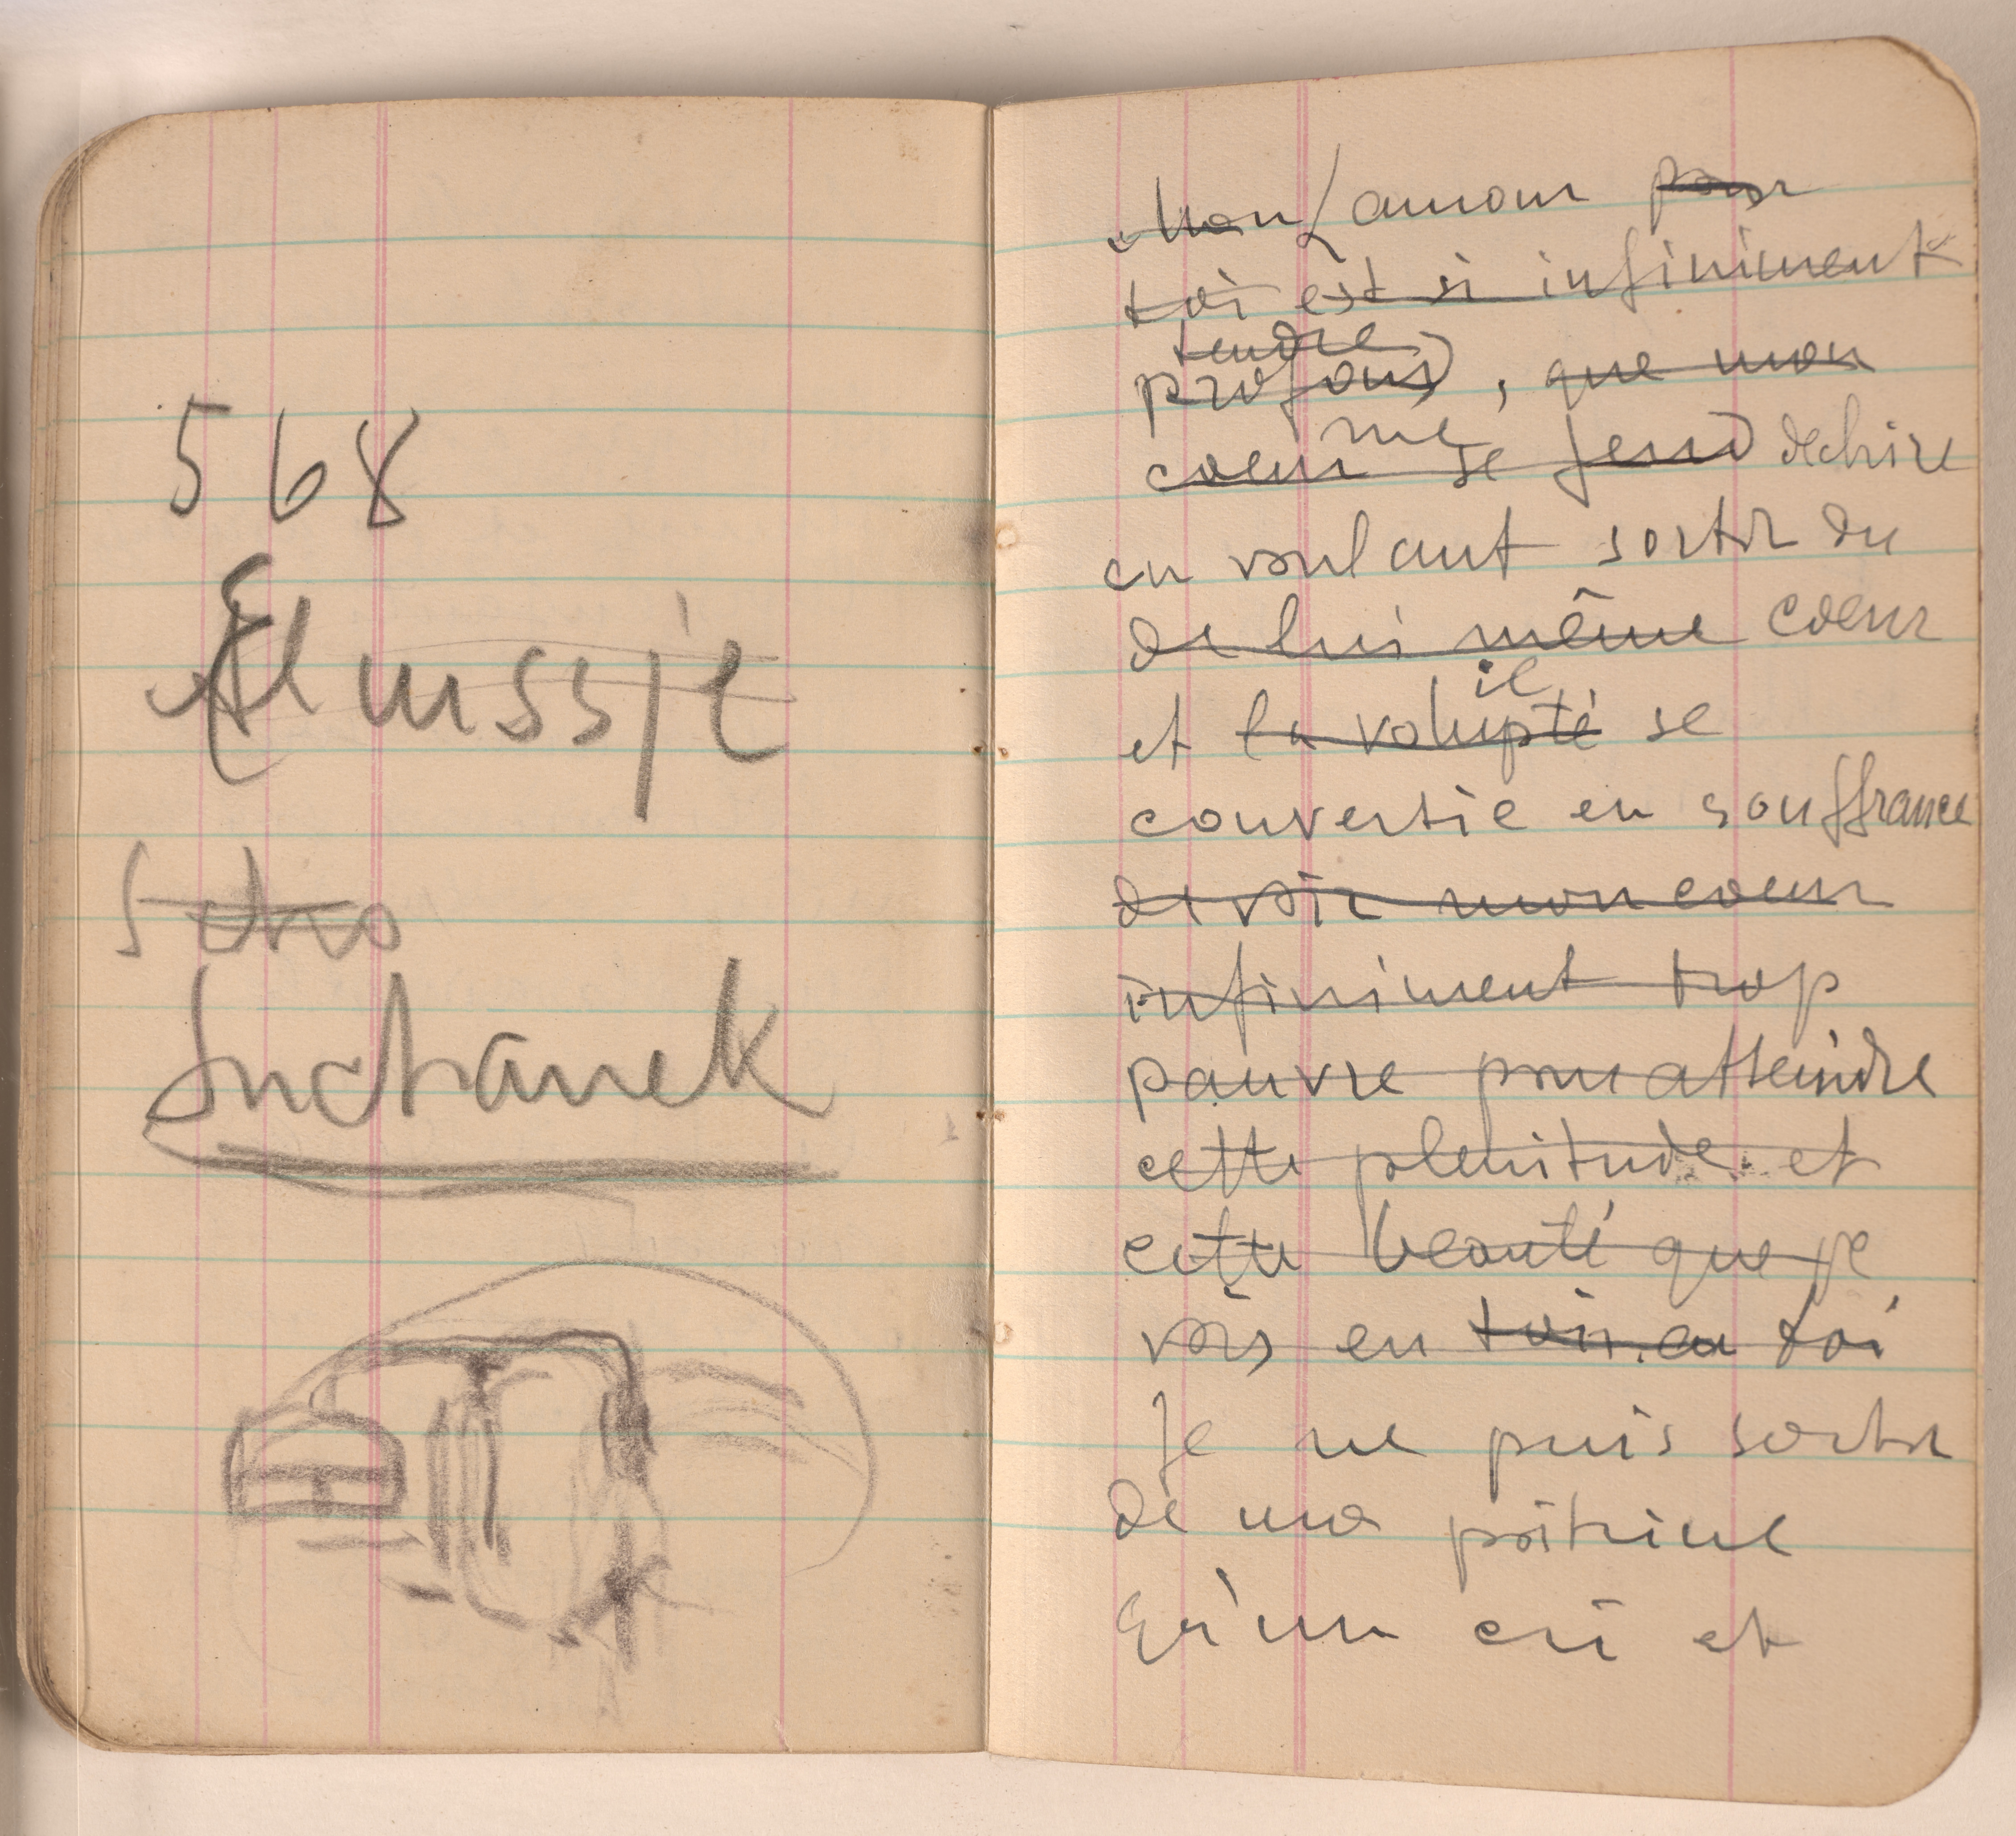 568
Suchanek
Mon L'amour pour
toi est si infiniment
tendre
profond, que mon
me
coeur se fend dechire
en voulant sortir du
de lui même coeur
il
et la volupté se
convertie en souffrance
de voir mon coeur
infiniment trop
pauvre pour atteindre
cette plenitude et
cette beauté que je
vois en toi
Je ne puis sortir
de ma poitrine
Qu'un cri et